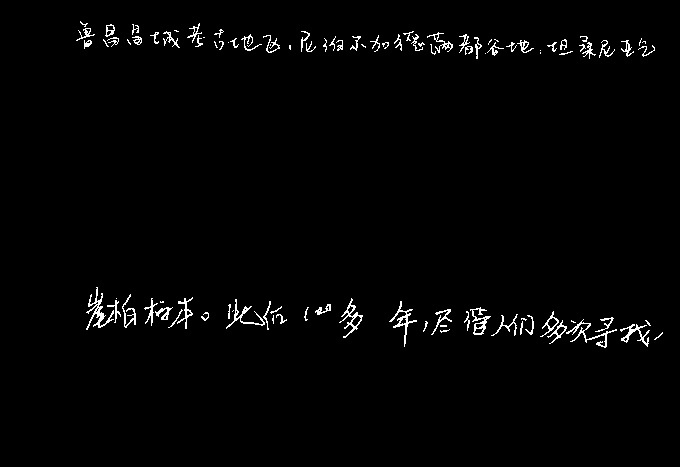 鲁昌昌城考古地区,尼泊尔加德满都谷地,坦桑尼亚乞
崖柏标本。此后100多年,尽管人们多次寻找,